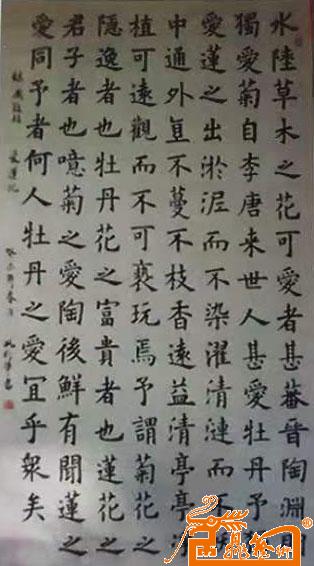 水陸草木之花可愛者甚蕃晉陶淵明
獨愛菊自李唐來世人甚愛牡丹予獨
愛蓮之出淤泥而不染濯清漣而不妖
中通外直不蔓不枝香遠益清亭亭淨
植可遠觀而不可褻玩焉予謂菊花之
隱逸者也牡丹花之富貴者也蓮花之
君子者也噫菊之愛陶後鮮有聞蓮之
愛同予者何人牡丹之愛宜乎眾矣
愛蓮